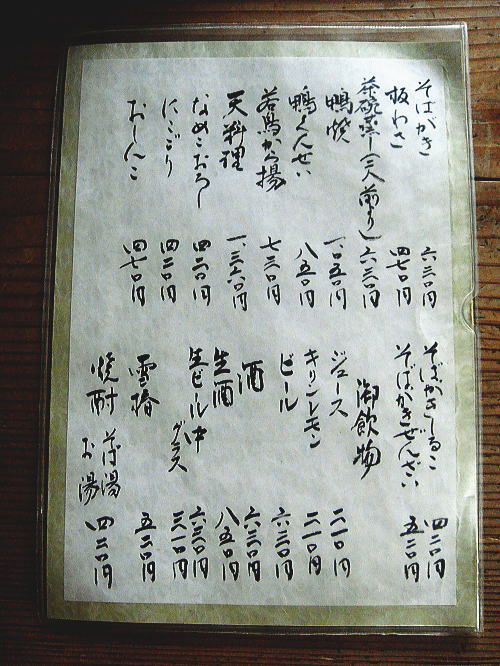 そばがき 六三〇円
板わさ 四七〇円
茶碗蒸し(二人前より) 六三〇円
鴨焼 一、〇五〇円
鴨くんせい 八五〇円
若鳥から揚 七三〇円
天料理 一、三六〇円
なめこおろし 四二〇円
にこごり 四二〇円
おしんこ 四七〇円
そばがきしるこ 四二〇円
そばがきぜんざい 五二〇円
御飲物
ジュース 二一〇円
キリンレモン 二一〇円
ビール 六三〇円
酒 六三〇円
生酒 八五〇円
生ビール中 六三〇円
グラス 三一〇円
雪椿 五二〇円
焼酎 そば湯 お湯 四二〇円